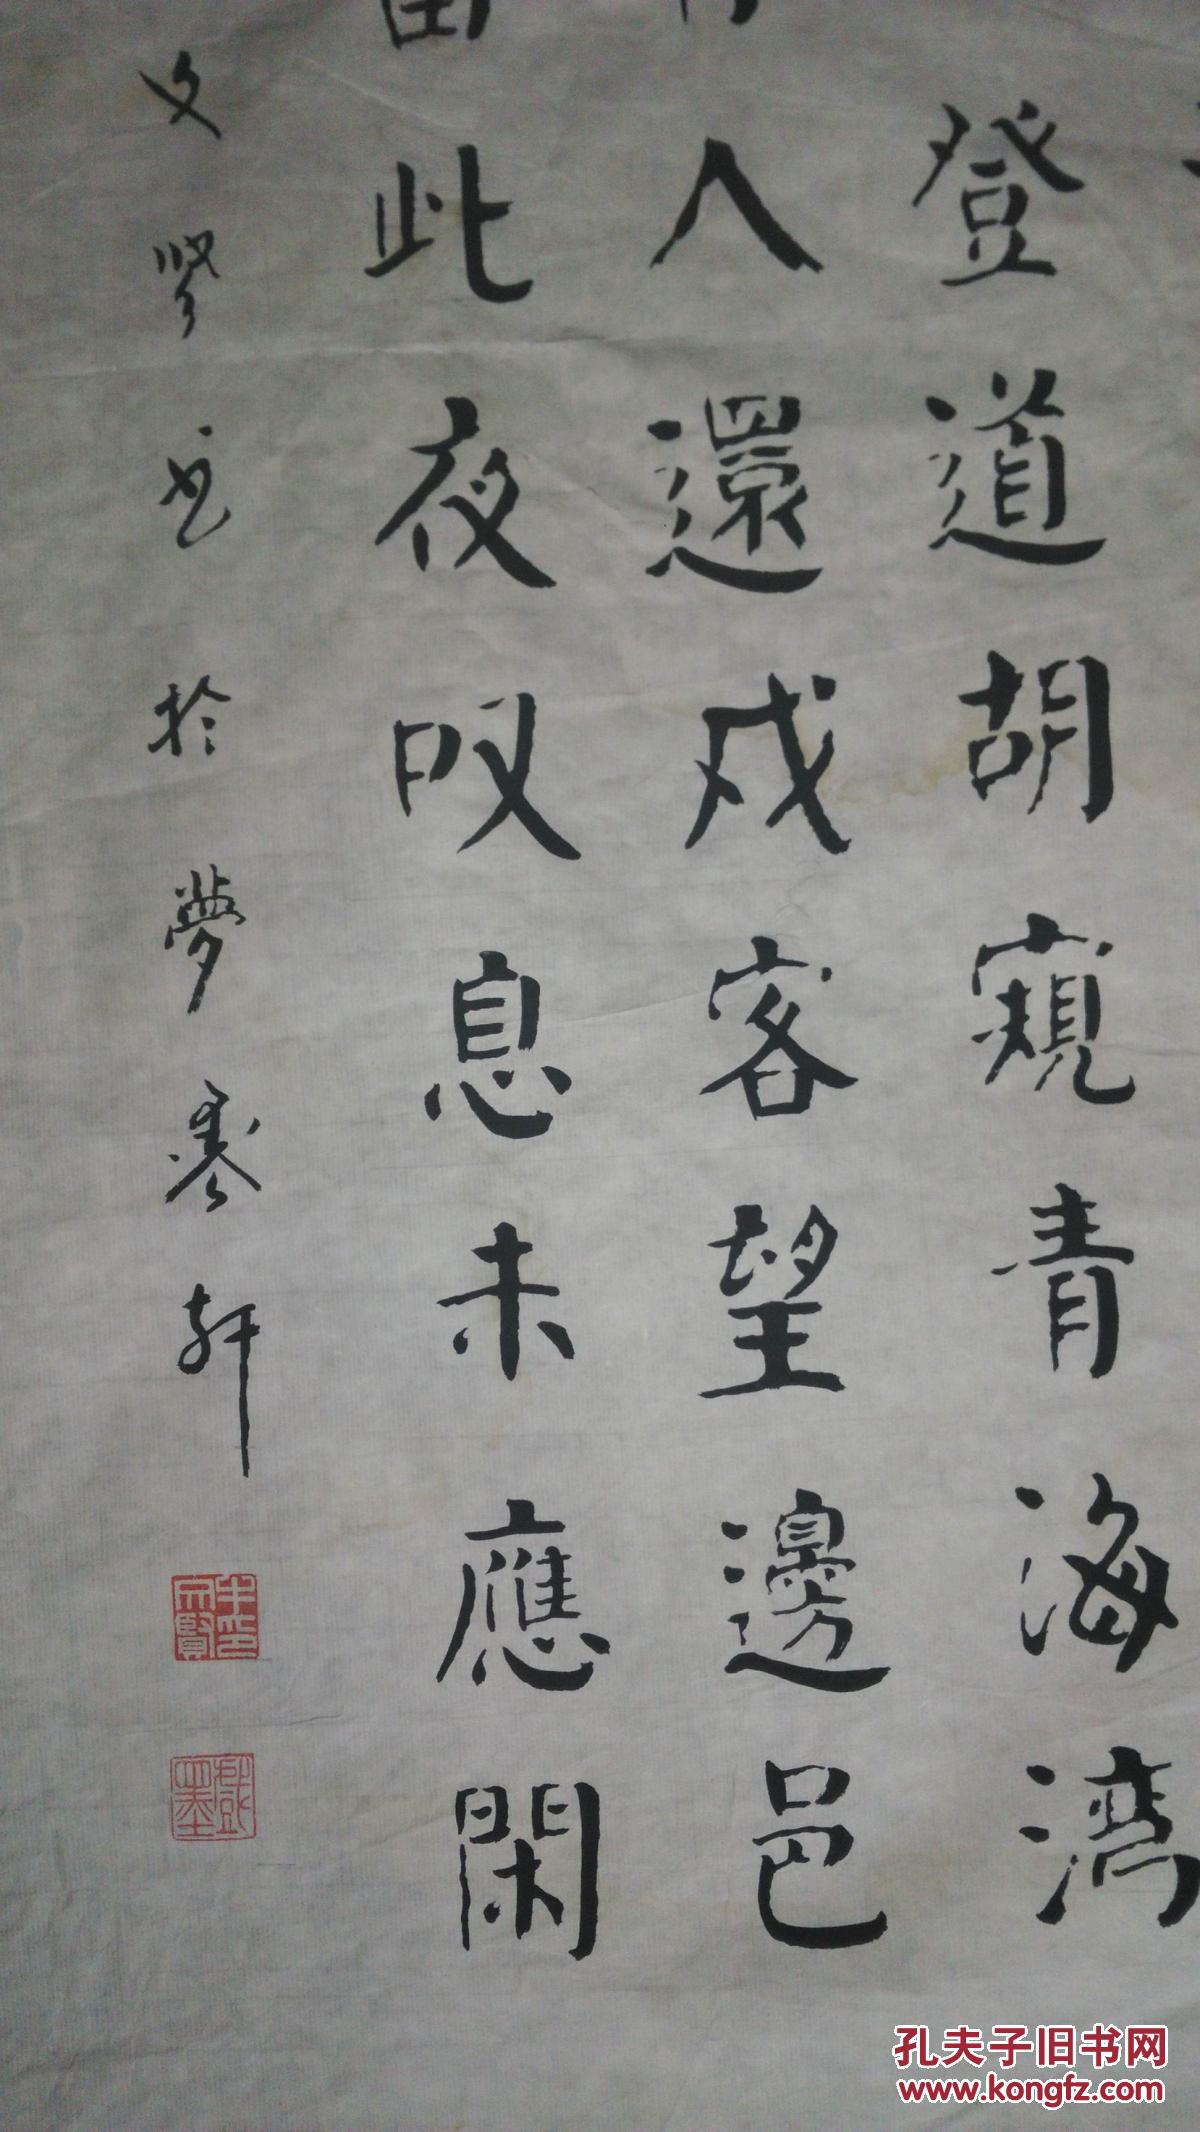 登道胡窺青海湾
人還戍客望邊邑
此夜叹息未應閑
文賢书於夢寒軒
孔夫子旧书网
www.kongfz.com